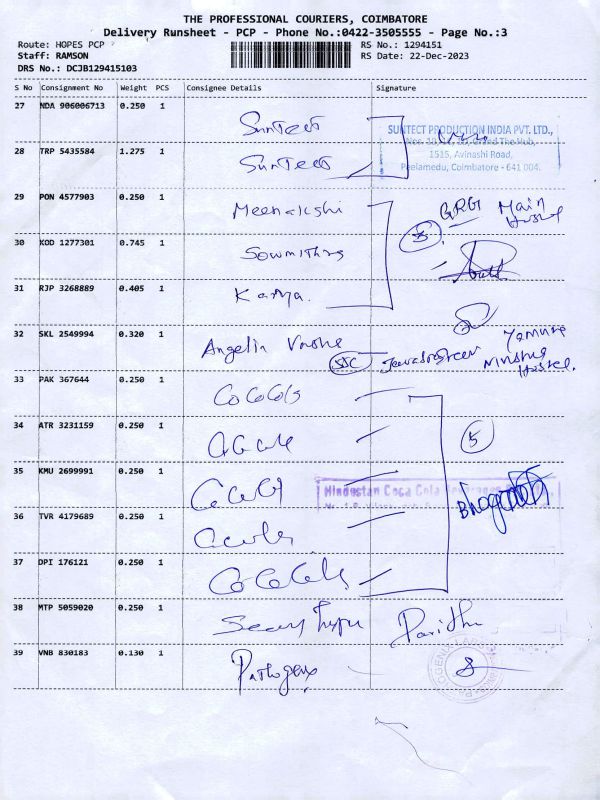 THE PROFESSIONAL COURIERS, COIMBATORE
Delivery Runsheet - PCP - Phone No.:0422-3505555 - Page No.:3
Route: HOPES PCP RS No.: 1294151
Staff: RAMSON RS Date: 22-Dec-2023
DRS No.: DCJB129415103
S No Consignment No Weight PCS Consignee Details Signature
27 NDA 906006713 0.250 1 Suntect
SUNTECT PRODUCTION INDIA PVT. LTD.,
28 TRP 5435584 1.275 1 Suntect
1515, Avinashi Road,
Peelamedu, Coimbatore - 641 004.
29 PON 4577903 0.250 1 Meenakshi GRG Main Hostel
30 KOD 1277301 0.745 1 Sowmithra
31 RJP 3268889 0.405 1 Kavya.
32 SKL 2549994 0.320 1 Angelin
Hostel.
33 PAK 367644 0.250 1 CoCoCola
34 ATR 3231159 0.250 1 5
35 KMU 2699991 0.250 1
Hindustan Coca Cola Beverages
36 TVR 4179689 0.250 1
37 DPI 176121 0.250 1
38 MTP 5059020 0.250 1
39 VNB 830183 0.130 1 Pathogenix